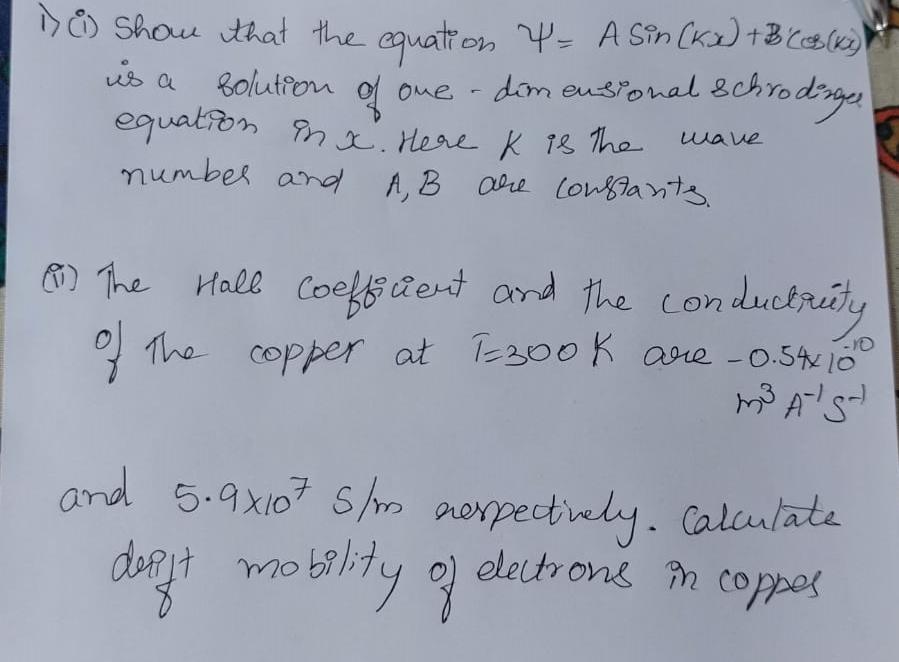 1) (i) Show that the equation Ψ = A Sin(Kx) + B Cos(Kx)
is a solution of one-dimensional Schrodinger
equation in x. Here K is the wave
number and A, B are constants.
(ii) The Hall coefficient and the conductivity
of the copper at T=300 K are -0.54x10⁻¹⁰
m³ A⁻¹ S⁻¹
and 5.9x10⁷ S/m respectively. Calculate
drift mobility of electrons in copper